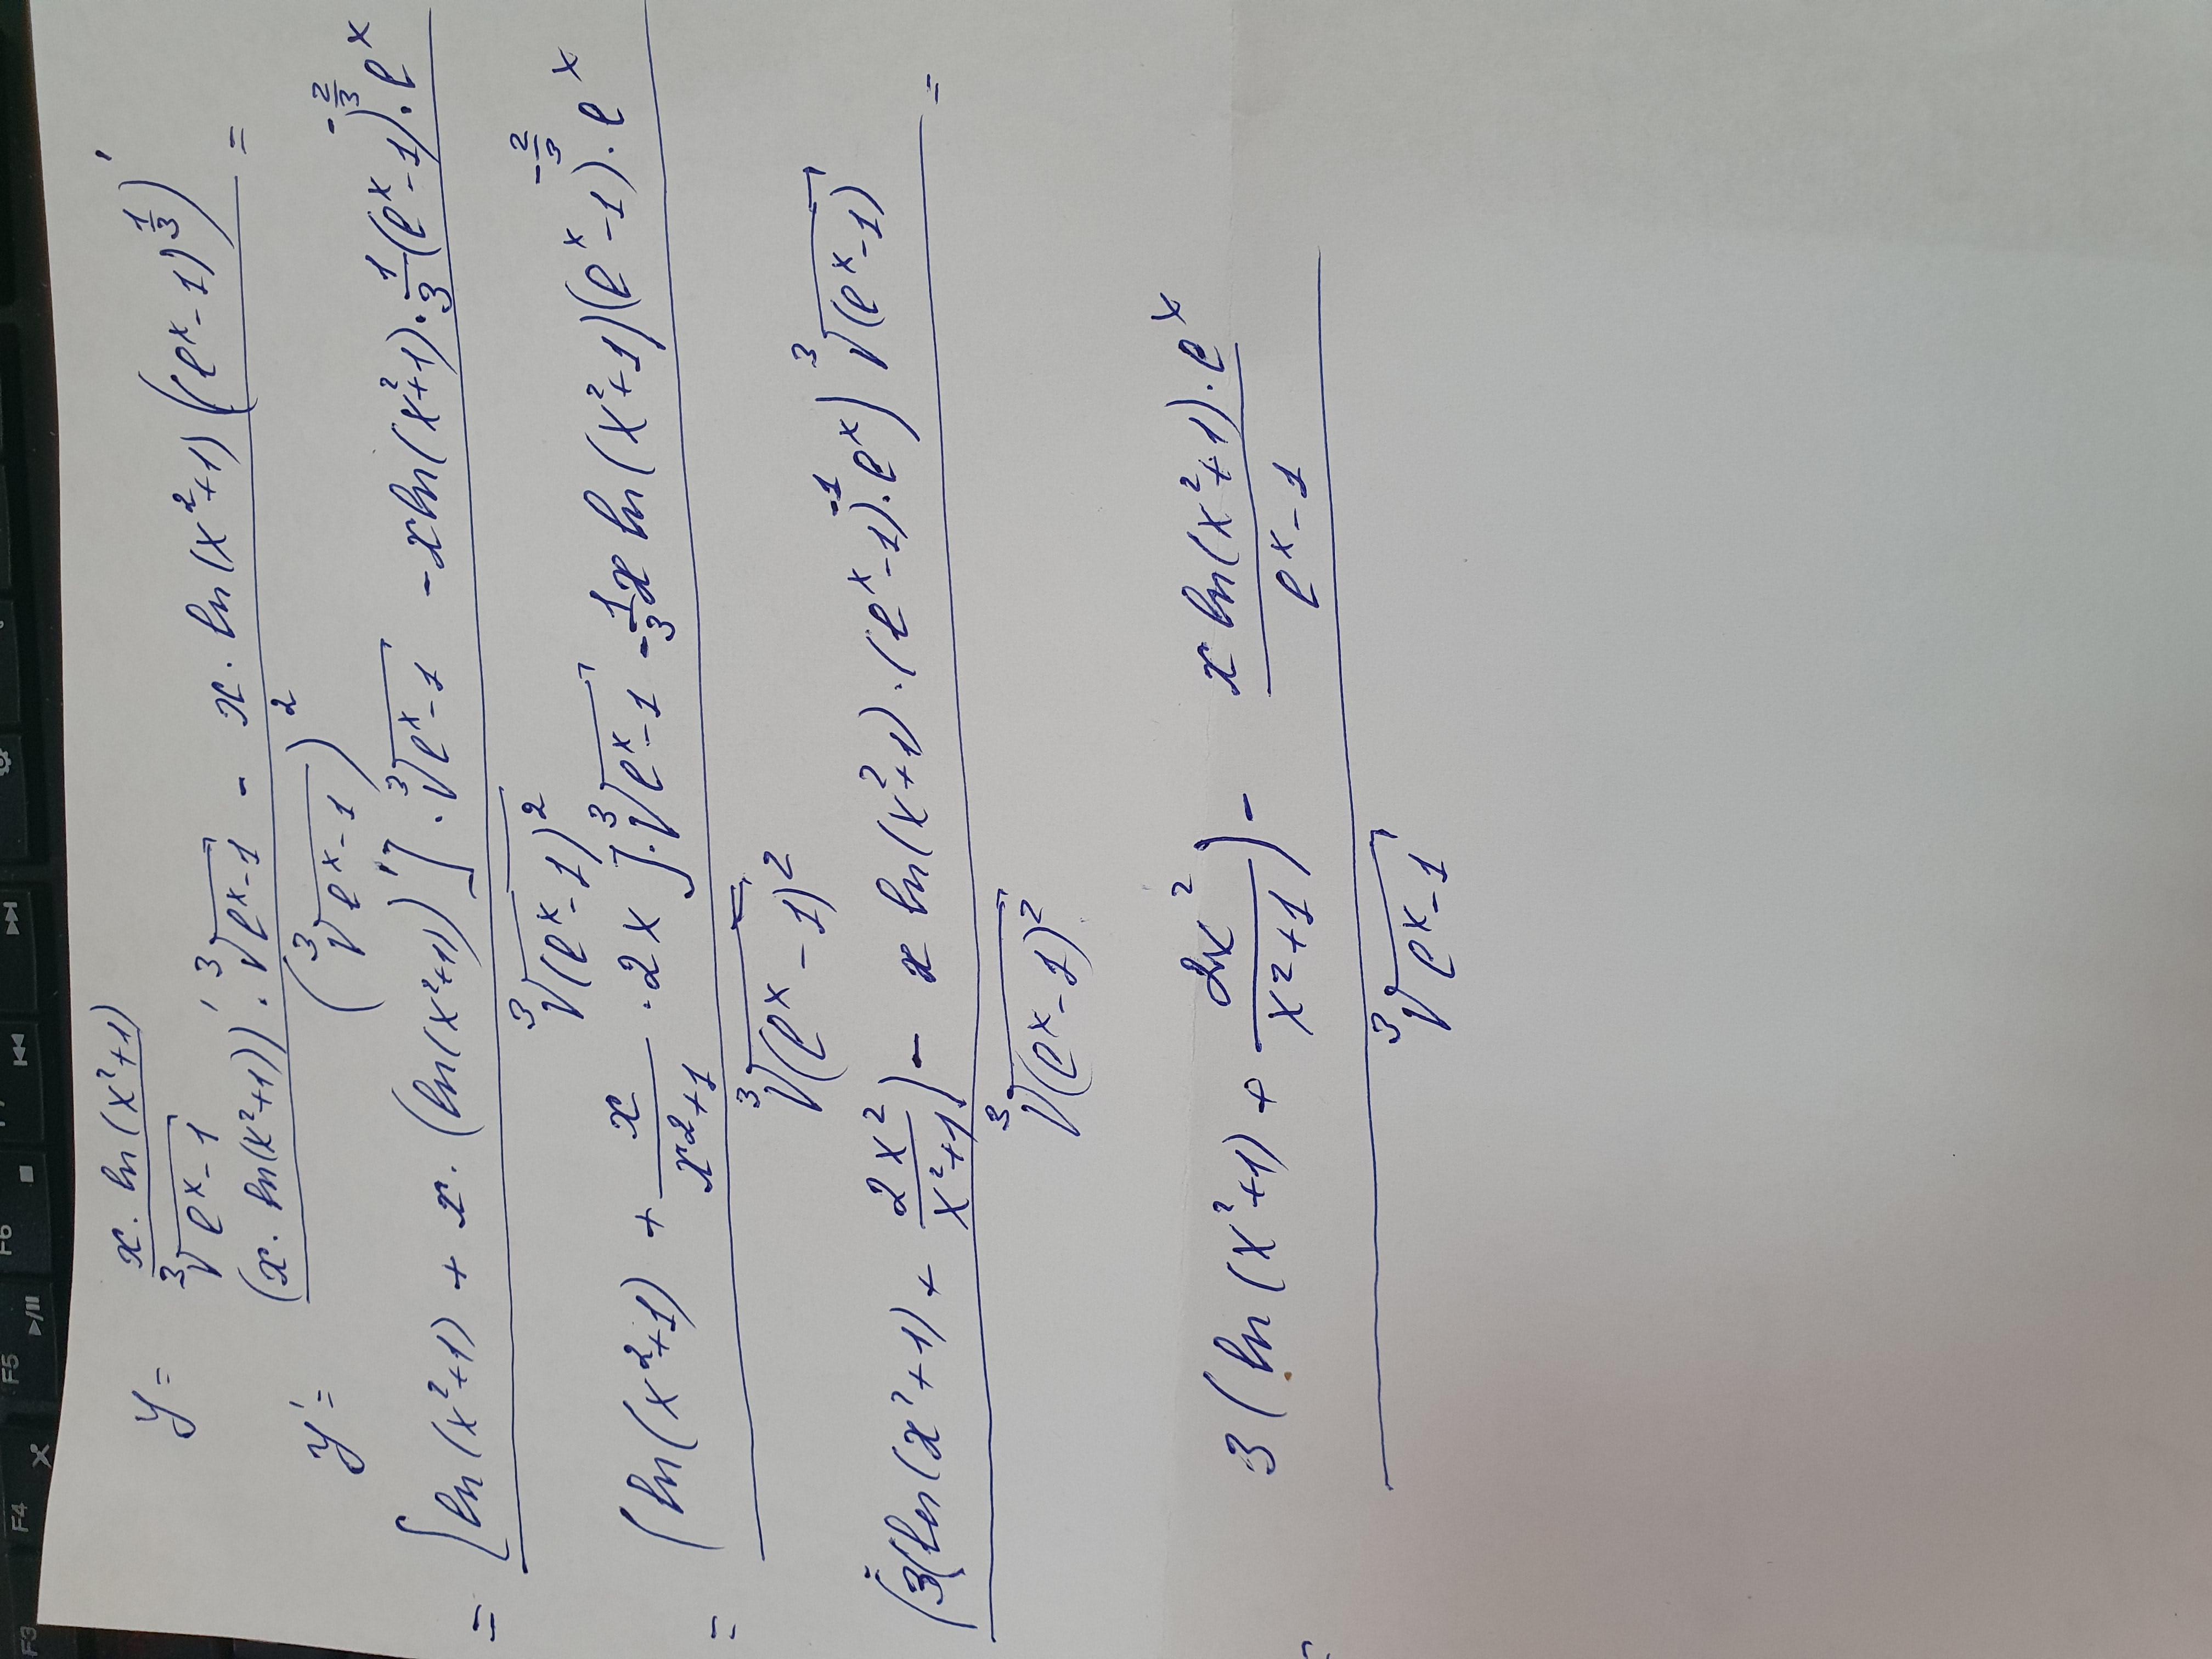 y = x · ln(x²+1) / ∛(eˣ-1)
y' = (x · ln(x²+1))' · ∛(eˣ-1) - x · ln(x²+1) ((eˣ-1)^(1/3))' / (∛(eˣ-1))² =
= [ln(x²+1) + x · (ln(x²+1))'] · ∛(eˣ-1) - x ln(x²+1) · 1/3 (eˣ-1)^(-2/3) · eˣ / ∛((eˣ-1)²)
= [ln(x²+1) + x/(x²+1) · 2x] · ∛(eˣ-1) - 1/3 x ln(x²+1)(eˣ-1)^(-2/3) · eˣ / ∛((eˣ-1)²)
(3(ln(x²+1) + 2x²/(x²+1)) - x ln(x²+1) · (eˣ-1)^(-1) · eˣ) ∛(eˣ-1) / ∛((eˣ-1)²) =
3(ln(x²+1) + 2x²/(x²+1)) - x ln(x²+1) · eˣ/(eˣ-1) / ∛(eˣ-1)
F3
F4
F5
F6